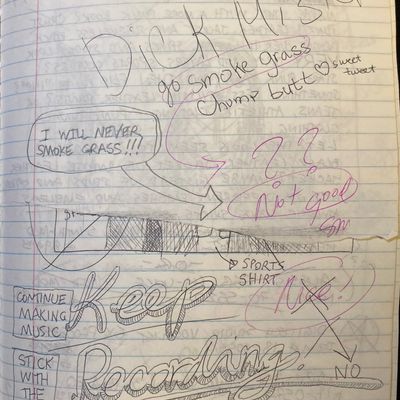 DICK MIST
go smoke grass
Chomp butt
sweet
tweet
I WILL NEVER
SMOKE GRASS!!!
? ?
Not good
SPORTS
SHIRT
Nice!
NO
CONTINUE
MAKING
MUSIC
Keep
Recording.
STICK
WITH
THE